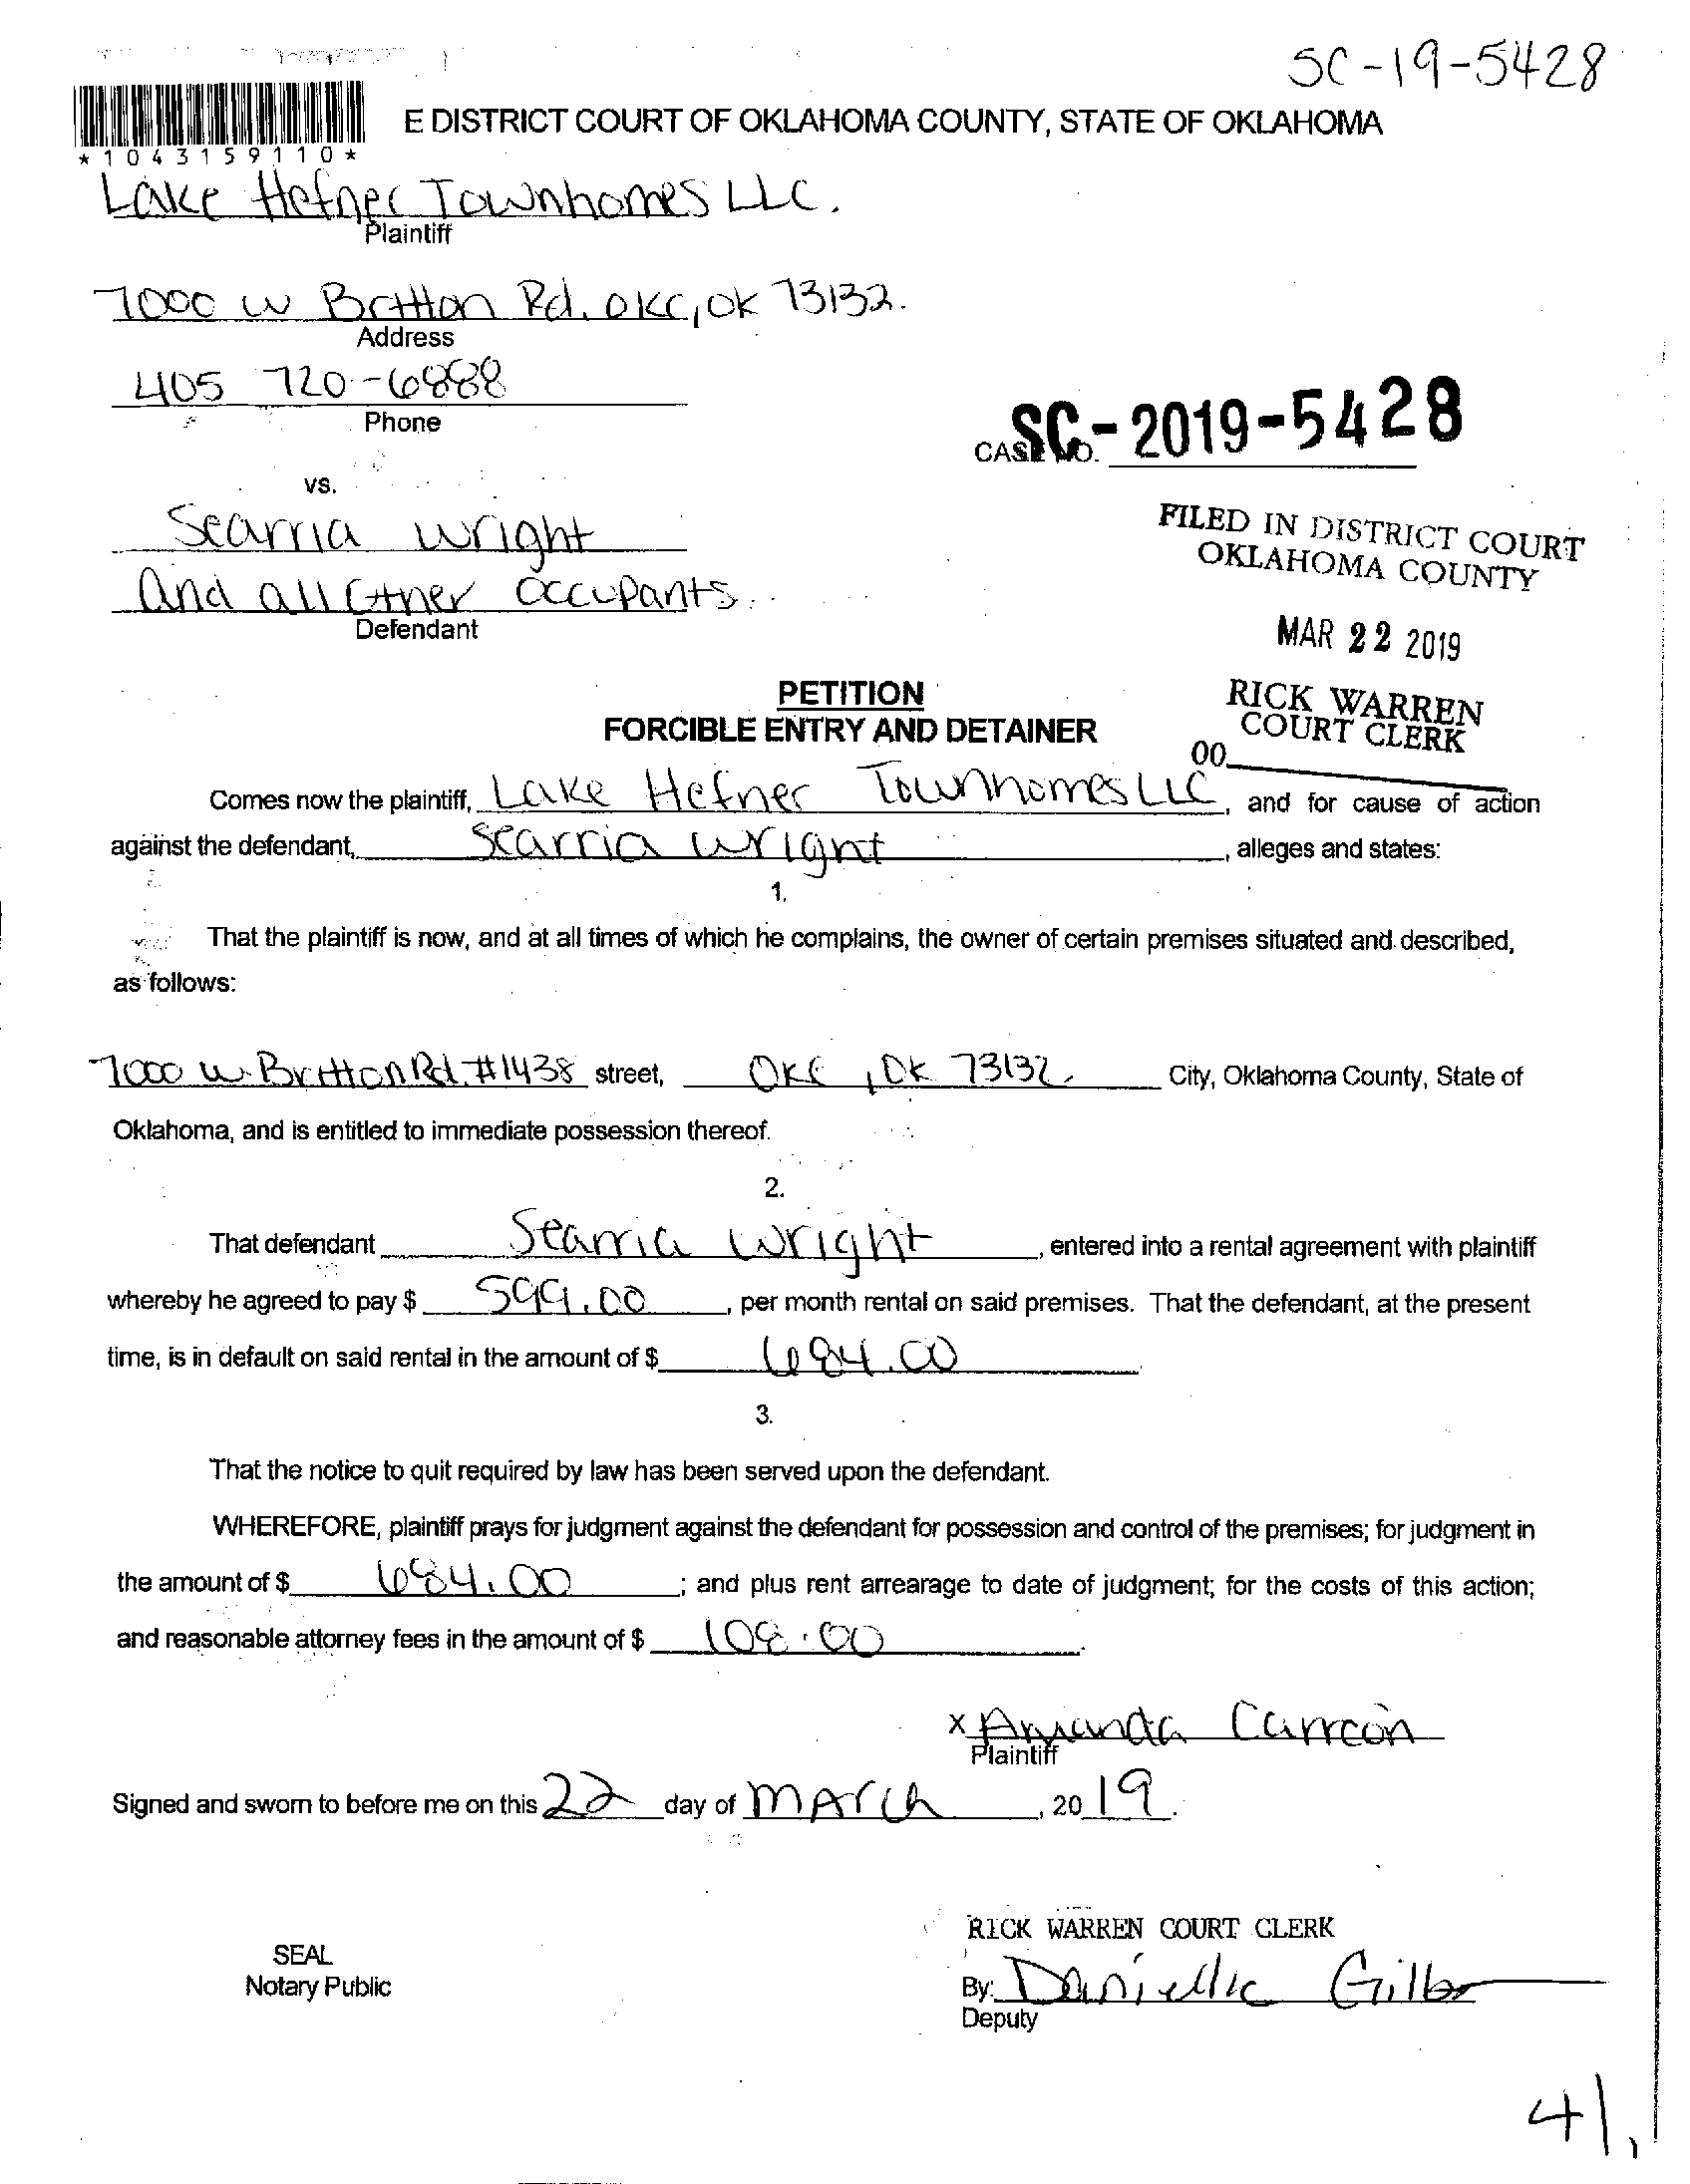 SC-19-5428
E DISTRICT COURT OF OKLAHOMA COUNTY, STATE OF OKLAHOMA
*1043159110*
Lake Hefner Townhomes LLC.
Plaintiff
7000 W Britton Rd. OKC, OK 73132.
Address
405 720-6888
Phone
SC-2019-5428
CASE NO.
vs.
Searria Wright
And all Other Occupants.
Defendant
FILED IN DISTRICT COURT
OKLAHOMA COUNTY
MAR 22 2019
RICK WARREN
COURT CLERK
00
PETITION
FORCIBLE ENTRY AND DETAINER
Comes now the plaintiff, Lake Hefner Townhomes LLC, and for cause of action
against the defendant, Searria Wright, alleges and states:
1.
That the plaintiff is now, and at all times of which he complains, the owner of certain premises situated and described,
as follows:
7000 W. Britton Rd. #1438 street, OKC, OK 73132, City, Oklahoma County, State of
Oklahoma, and is entitled to immediate possession thereof.
2.
That defendant Searria Wright, entered into a rental agreement with plaintiff
whereby he agreed to pay $ 599.00, per month rental on said premises. That the defendant, at the present
time, is in default on said rental in the amount of $ 684.00.
3.
That the notice to quit required by law has been served upon the defendant.
WHEREFORE, plaintiff prays for judgment against the defendant for possession and control of the premises; for judgment in
the amount of $ 684.00; and plus rent arrearage to date of judgment; for the costs of this action;
and reasonable attorney fees in the amount of $ 108.00.
x Amanda Carreon
Plaintiff
Signed and sworn to before me on this 22 day of March, 2019.
RICK WARREN COURT CLERK
SEAL
Notary Public
By: Danielle
Deputy
41,